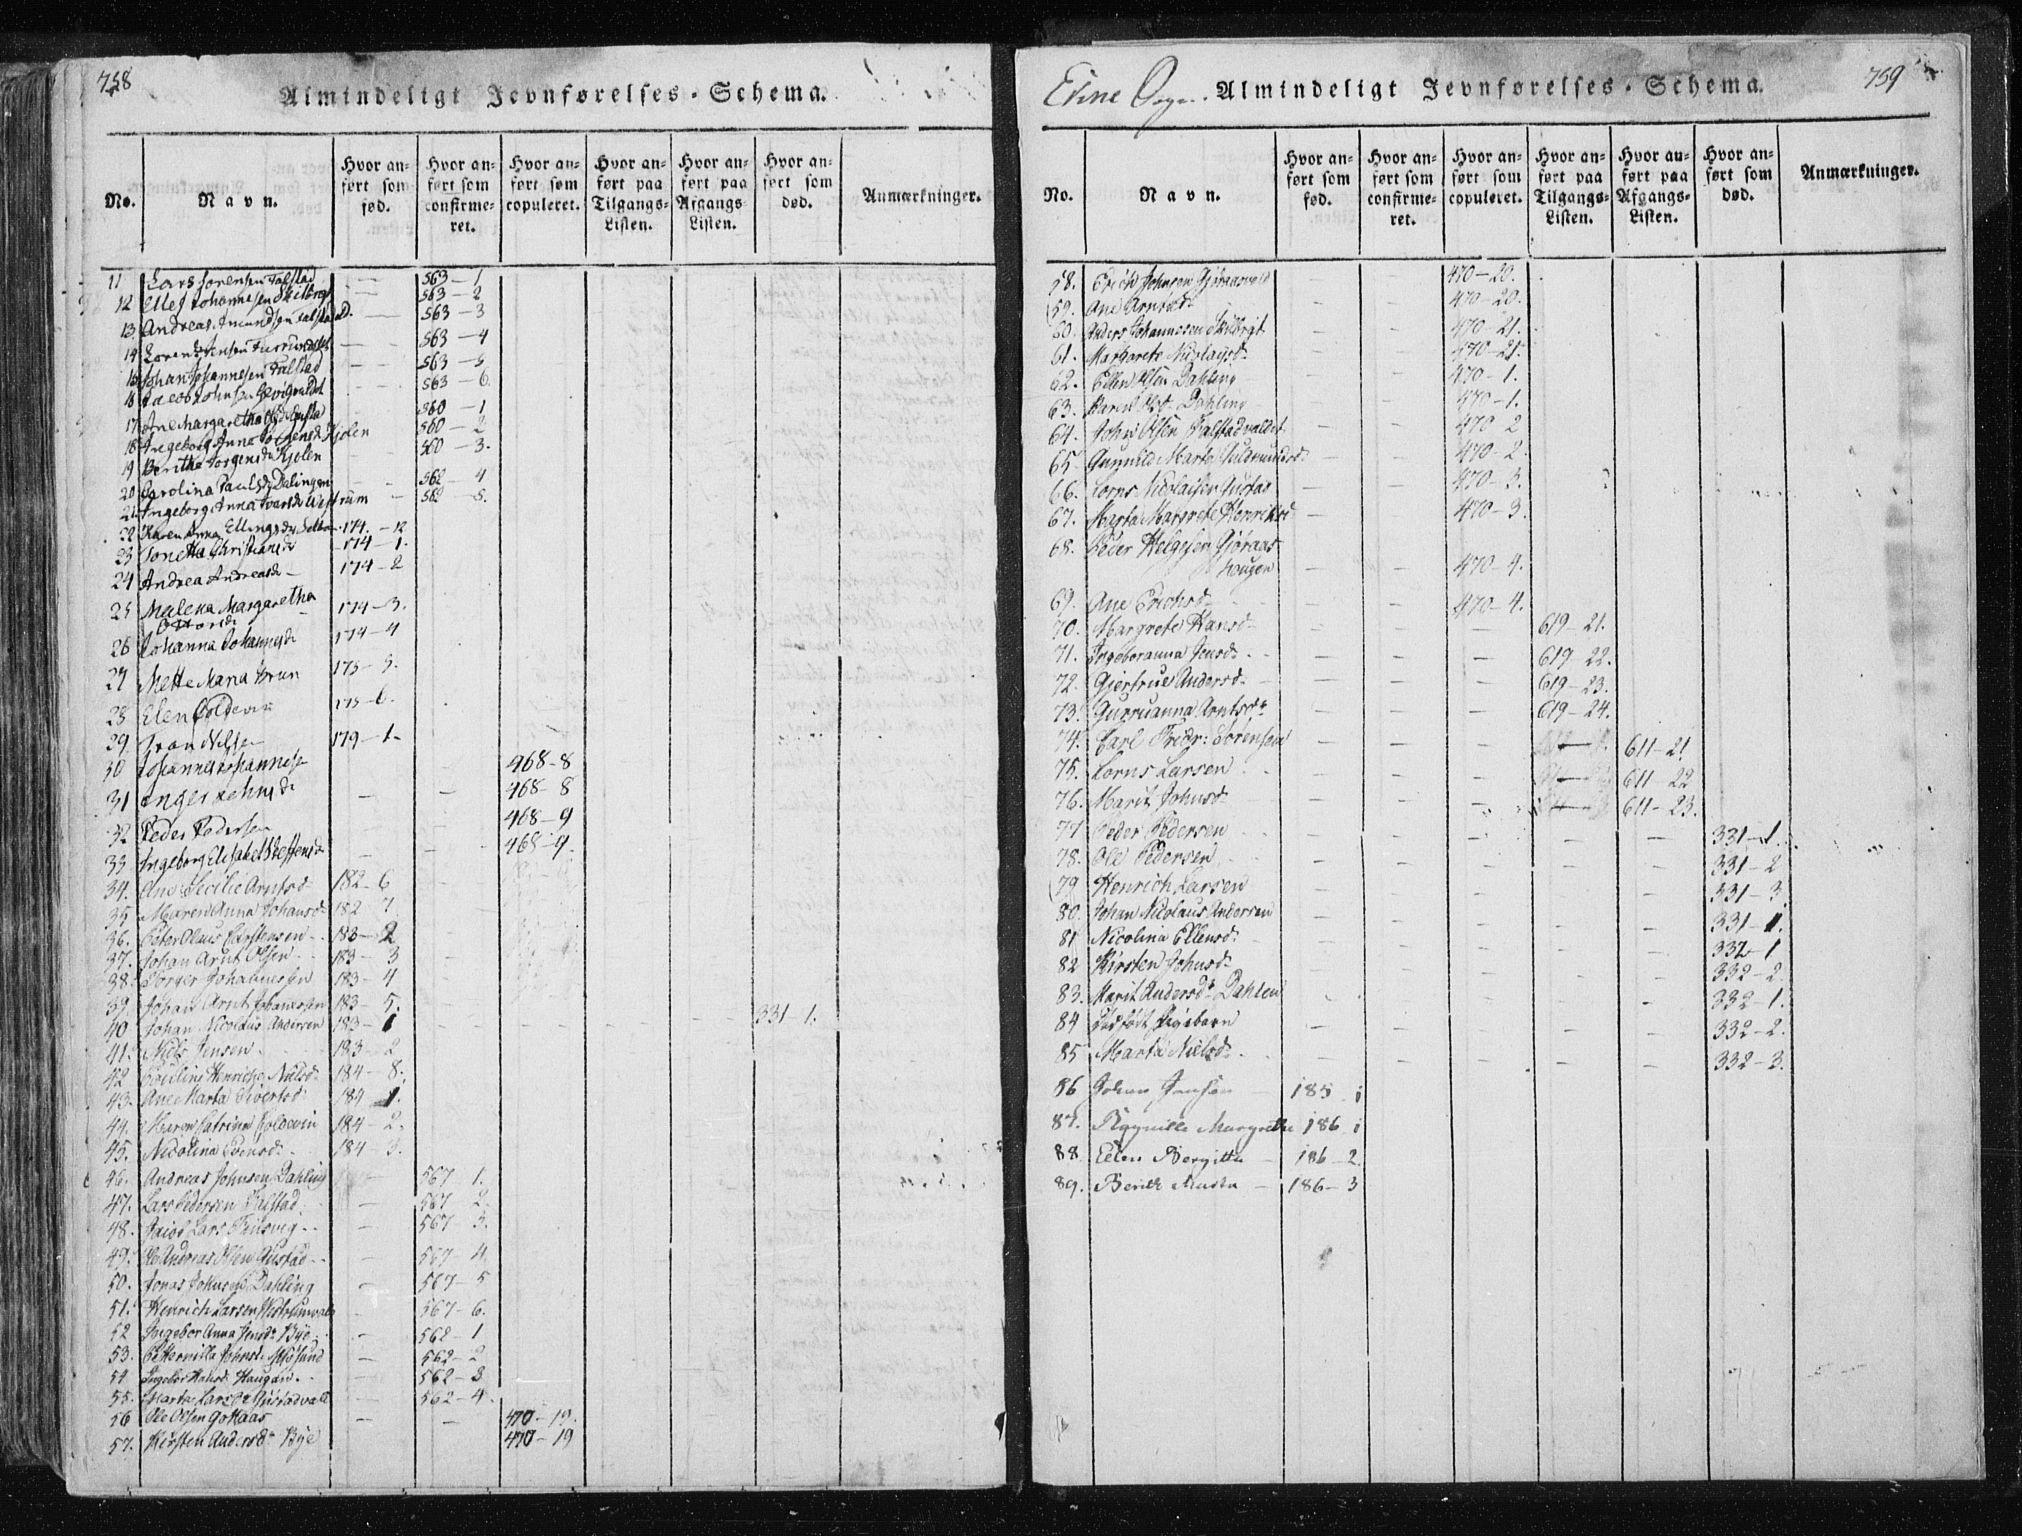 758
Almindeligt Jevnførelses-Schema.
No. Navn. Hvor anført som fød. Hvor anført som confirmeret. Hvor anført som copuleret. Hvor anført paa Tilgangs-Listen. Hvor anført paa Afgangs-Listen. Hvor anført som død. Anmærkninger.
11 Lars Sorensen Falstad — 563-1
12 Ellef Johannesen — 563-2
13 Andreas Amundsen — 563-3
14 — 563-4
15 Johan Johannesen Falstad — 563-5
16 Jacob Johnsen — 563-6
17 Ane Margaretha 560-1
18 Ingeborg Anna Kjolen 560-2
19 Berithe Jorgensd Kjolen 560-3.
20 Carolina Paulsd Dalingen — 562-4
21 Ingeborg Anna Westrum — 562-5.
22 Karen Anna Ellingsd 171.-12
23 Jonetta Christiansd 174-1.
24 Andrea Andreasd — 174-2
25 Malena Margaretha 174-3.
Ottarsd
26 Johanna Johannesd 174-4
27 Mette Maria Brun 175-5.
28 Elen Coldevin 175-6.
29 Ivan Nilsen 179-1-
30 Johannes Johannesen 468-8
31 Inger Johnsd — — 468-8
32 Peder Pedersen 468-9
33 Ingeborg Elisabet Steffensd — — 468-9.
34. Ane Cecilie Arntsd 182-6
35 Maren Anna Johansd. 182-7
36. Peter Olaus Carstensen 183-2
37. Johan Arnt Olsen 183-3
38. Borger Johannessen 183-4
39. Johan Arnt Johannessen 183-5.
40 Johan Nicolaus Andersen 183-1 — — — — 331-1.
41. Niels Jensen. 183-2
42 Paulina Henricha Nielsd. 184-8.
43. Ane Marta Sivertsd. 184-1.
44. Maren Catrina Coldevin 184-2.
45. Nicolina Evensd. 184-3.
46. Andreas Johnsen Dahling 567-1.
47. Lars Pedersen Falstad. — 567-2.
48. Jacob Lars — 567-3.
49. Ole Andreas Olsen Gustad — 567-4.
50. Jonas Johnsen Dahling — 567-5
51. Henrich Larsen 567-6.
52 Ingebor Anna Jensd. Bye — 562-1
53. Petternilla Johnsd. — 562-2
54 Ingebor Hansd. Haugan. — 562-3
55. Marta Larsd. Gustadvald — 562-4.
56 Ole Olsen — — 470-19.
57. Kirsten Andersd. Bye 470-19
759
Almindeligt Jevnførelses-Schema.
No. Navn. Hvor anført som fød. Hvor anført som confirmeret. Hvor anført som copuleret. Hvor anført paa Tilgangs-Listen. Hvor anført paa Afgangs-Listen. Hvor anført som død. Anmærkninger.
58. Erich Johnsen — — 470-20.
59. Ane Arntsd. 470-20.
60. Anders Johannessen — — 470-21.
61. Margarete Nicolaysd. — — 470-21.
62. Ellen Olsen Dahling — — 470-1.
63. Karen Olsd. Dahling — — 470-1.
64. John Olsen Falstadvaldet — — 470-2
65. Gunnild Marta — — 470-2.
66. Lorns Nicolaisen Gustad — — 470-3.
67. Marta Margrete Henriksd — — 470-3.
68. Peder Helgesen
haugen — — 470-4.
69. Ane Erichsd. — — 470-4.
70. Margrete Hansd. — — — 619-21.
71. Ingeboranna Jensd. — — — 619-22.
72. Gjertrue Andersd. — — — 619-23.
73. Gurruanna Arntsd. — — — 619-24.
74. Carl Fridr: Sörensen — — — 611-21
75. Lorns Larsen — — — 611-22
76. Marit Johnsd. — — — 611-23.
77 Peder Pedersen — — — — — 331-1.
78. Ole Pedersen — — — — — 331-2
79 Henrich Larsen — — — — — 331-3
80. Johan Nicolaus Andersen — — — — — 331-1.
81 Nicolina Ellensd. — — — — — 332-1
82 Kirsten Johnsd. — — — — — 332-2
83. Marit Andersd. Dahlen — — — — 332-1.
84 Dødfødt Pigebarn — — — — — 332-2.
85 Marta Nielsd. — — — — — 332-3.
86 Johan Jensen — 185-1
87. Ragnille Margrethe 186-1
88 Elen Bergitta — 186-2.
89. Berith Marta — 186-3